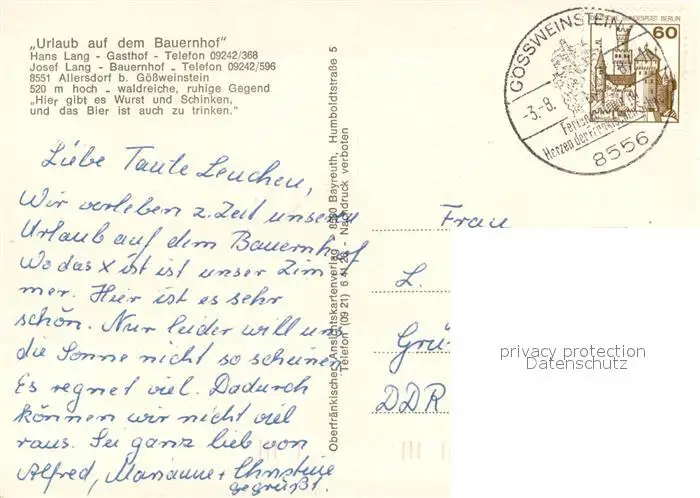 „Urlaub auf dem Bauernhof"
Hans Lang - Gasthof - Telefon 09242/368
Josef Lang - Bauernhof - Telefon 09242/596
8551 Allersdorf b. Gößweinstein
520 m hoch - waldreiche, ruhige Gegend
„Hier gibt es Wurst und Schinken,
und das Bier ist auch zu trinken."
Liebe Tante Lenchen,
Wir verleben z. Zeit unseren
Urlaub auf dem Bauernhof
Wo das X ist ist unser Zim
mer. Hier ist es sehr
schön. Nur leider will uns
die Sonne nicht so scheinen
Es regnet viel. Dadurch
können wir nicht viel
raus. Sei ganz lieb von
Alfred, Marianne + Christine
gegrüßt.
Oberfränkischer Ansichtskartenverlag, 8580 Bayreuth, Humboldtstraße 5
Telefon (09 21) 6 41 28 - Nachdruck verboten
GÖSSWEINSTEIN 1
-3.-8.
Herzen der Fränkischen Schweiz
8556
DEUTSCHE BUNDESPOST BERLIN
60
Frau
L.
Grü
DDR
privacy protection
Datenschutz